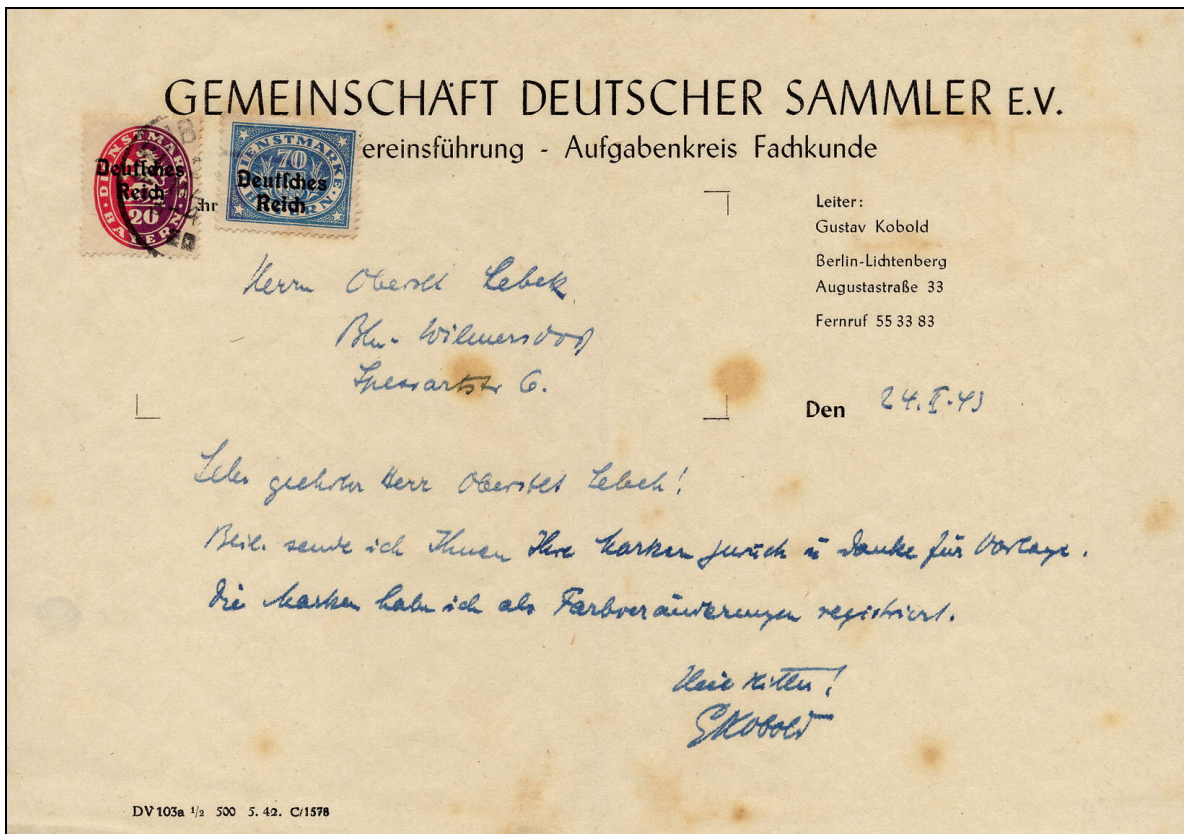 GEMEINSCHAFT DEUTSCHER SAMMLER E.V.
ereinsführung - Aufgabenkreis Fachkunde
DIENSTMARKE
Deutsches
Reich
20
BAYERN
DIENSTMARKE
70
Deutsches
Reich
BAYERN
hr
Leiter:
Gustav Kobold
Berlin-Lichtenberg
Augustastraße 33
Fernruf 55 33 83
Herrn Oberstlt Lebek
Bln.- Wilmersdorf
Spessartstr 6.
Den 24.II.43
Sehr geehrter Herr Oberstlt Lebek!
Beil. sende ich Ihnen Ihre Marken zurück u danke für Vorlage.
Die Marken habe ich als Farbveränderungen registriert.
Heil Hitler!
GKobold
DV 103a 1/2 500 5. 42. C/1578